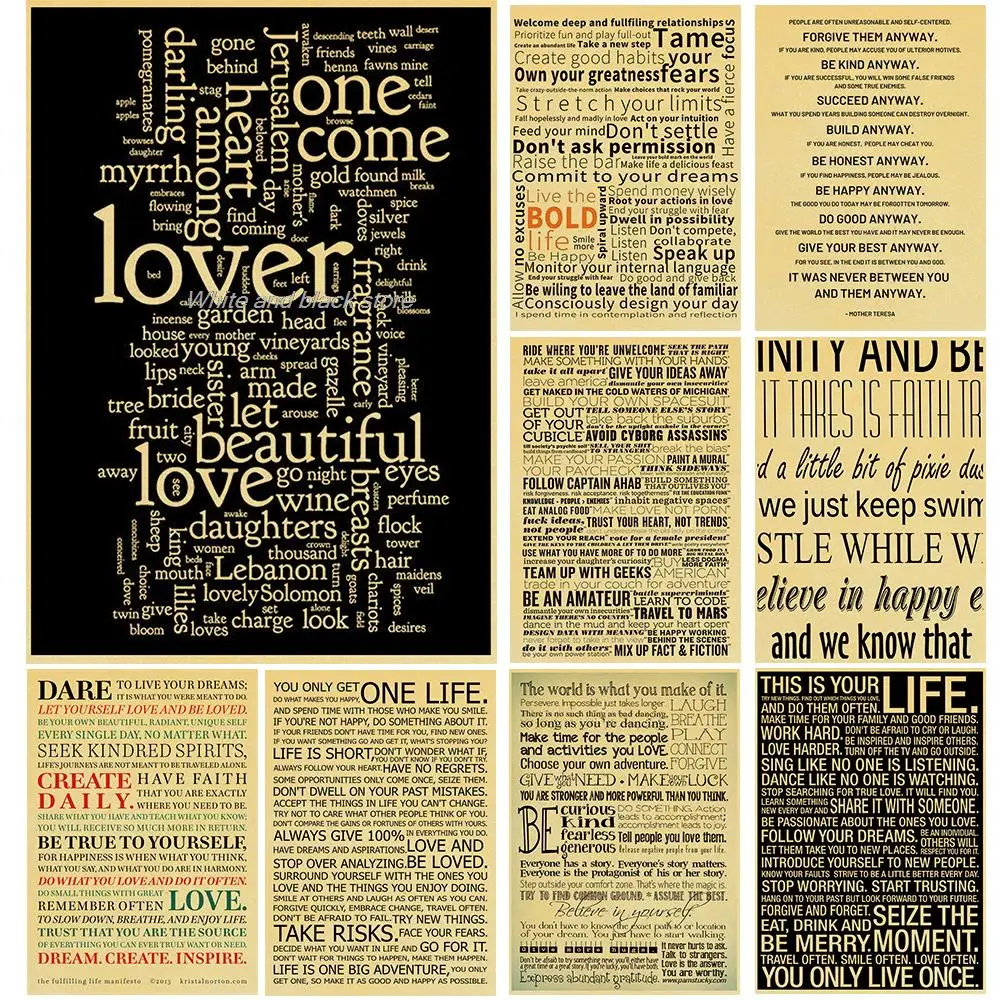 descending teeth wall desert
awaken
friends vines carriage
henna fawns mine
tell
cedars
faint
pomegranates
darling
gone
behind
stag
heart
among
Jerusalem
beloved
day
one
come
apple
apples
browses
daughter
browse
myrrh
embraces
flowing
bring
find
coming
mother's
arise
flame
gold found milk
breaks
watchmen
spice
doves
silver
jewels
dark
door
right
drink
lover
bed
desire
builded
feet
left
carrying
delightful
hills
blossoms
fragrance
White and black store
incense
garden
head
flee
voice
house
every mother
vineyards
looked young
cheeks
lips
neck
arm
spread
gazelle
vineyard
pleasing
better
early
sister
made
tree bride
let
arouse
fruit
city
beautiful
two
away
see
love
go night
eyes
wine
breasts
perfume
awake
daughters
flock
tower
hair
sheep
king
women
thousand
crown
delight
mouth
Lebanon
turn
goats
maidens
veil
lilies
lovely Solomon
chariots
spices
concubines
conceived
choice
dove
twin
give
bloom
loves
take
charge
set
alone
look
field
desires
Welcome deep and fullfiling relationships
Prioritize fun and play full-out
Create an abundant life Take a new step
Tame
your
fears
Have a fierce focus
Create good habits
Own your greatness
Take crazy-outside-the-norm action Make choices that rock your world
Stretch your limits
Fall hopelessly and madly in love Act on your intuition
Feed your mind Don't settle
Don't ask permission
Leave your bold mark on the world
Raise the bar Make life a delicious feast
Commit to your dreams
Allow no excuses
Live the
BOLD
life
Smile
more
Be Happy
spiral upward
Spend money wisely
Root your actions in love
End your struggle with fear
Dwell in possibility
Listen Don't compete,
Listen collaborate
Listen Speak up
Monitor your internal language
End your struggle with fear Do good and give back
Be wiling to leave the land of familiar
Consciously design your day
I spend time in contemplation and reflection
PEOPLE ARE OFTEN UNREASONABLE AND SELF-CENTERED.
FORGIVE THEM ANYWAY.
IF YOU ARE KIND, PEOPLE MAY ACCUSE YOU OF ULTERIOR MOTIVES.
BE KIND ANYWAY.
IF YOU ARE SUCCESSFUL, YOU WILL WIN SOME FALSE FRIENDS
AND SOME TRUE ENEMIES.
SUCCEED ANYWAY.
WHAT YOU SPEND YEARS BUILDING SOMEONE CAN DESTROY OVERNIGHT.
BUILD ANYWAY.
IF YOU ARE HONEST, PEOPLE MAY CHEAT YOU.
BE HONEST ANYWAY.
IF YOU FIND HAPPINESS, PEOPLE MAY BE JEALOUS.
BE HAPPY ANYWAY.
THE GOOD YOU DO TODAY MAY BE FORGOTTEN TOMORROW.
DO GOOD ANYWAY.
GIVE THE WORLD THE BEST YOU HAVE AND IT MAY NEVER BE ENOUGH.
GIVE YOUR BEST ANYWAY.
FOR YOU SEE, IN THE END IT IS BETWEEN YOU AND GOD.
IT WAS NEVER BETWEEN YOU
AND THEM ANYWAY.
- MOTHER TERESA
RIDE WHERE YOU'RE UNWELCOME SEEK THE PATH
THAT IS RIGHT
MAKE SOMETHING WITH YOUR HANDS
take it all apart GIVE YOUR IDEAS AWAY
leave america dismantle your own insecurities
GET NAKED IN THE COLD WATERS OF MICHIGAN
BUILD YOUR OWN SPACESUIT
GET OUT
OF YOUR
CUBICLE
TELL SOMEONE ELSE'S STORY
take back the suburbs
don't be the uptight asshole in the corner
AVOID CYBORG ASSASSINS
SELL YOUR SHIT
TO STRANGERS
build things from cardboard
break the bias
MAKE YOUR PASSION
YOUR PAYCHECK
PAINT A MURAL
THINK SIDEWAYS
FOLLOW CAPTAIN AHAB
BUILD SOMETHING
THAT OUTLIVES YOU
risk forgiveness. risk acceptance. risk togetherness FIX THE EDUCATION FUNK
KNOWLEDGE - PEOPLE > ENEMIES inhabit negative spaces
EAT ANALOG FOOD MAKE LOVE NOT PORN
fuck ideas,
not people
TRUST YOUR HEART, NOT TRENDS
don't underestimate the old lady on the corner
EXTEND YOUR REACH vote for a female president
GIVE THE KEYS TO THE CHILDREN & LET THEM DRIVE
USE WHAT YOU HAVE MORE OF TO DO MORE
GROW FOOD IN A
BIG METAL BOX
increase your daughter's curiosity
BUY
AMERICAN
LESS DOGMA
MORE FAITH
TEAM UP WITH GEEKS
trade in your couch for adventure
BE AN AMATEUR
battle supercriminals
LEARN TO CODE
dismantle your own insecurities
IMAGINE THERE'S NO COUNTRY
TRAVEL TO MARS
dance in the mud and keep your heart open
DESIGN DATA WITH MEANING BE HAPPY WORKING
BEHIND THE SCENES
never forget to take in the view
do it with others
be your own power station
MIX UP FACT & FICTION
INITY AND BE
IT TAKES IS FAITH TR
d a little bit of pixie dus
we just keep swim
STLE WHILE W
elieve in happy e
and we know that
DARE TO LIVE YOUR DREAMS;
IT IS WHAT YOU WERE MEANT TO DO.
LET YOURSELF LOVE AND BE LOVED.
BE YOUR OWN BEAUTIFUL, RADIANT, UNIQUE SELF
EVERY SINGLE DAY, NO MATTER WHAT.
SEEK KINDRED SPIRITS,
LIFE'S JOURNEYS ARE NOT MEANT TO BE TRAVELED ALONE.
CREATE
DAILY.
HAVE FAITH
THAT YOU ARE EXACTLY
WHERE YOU NEED TO BE.
SHARE WHAT YOU HAVE AND TEACH WHAT YOU KNOW;
YOU WILL RECEIVE SO MUCH MORE IN RETURN.
BE TRUE TO YOURSELF,
FOR HAPPINESS IS WHEN WHAT YOU THINK,
WHAT YOU SAY, AND WHAT YOU DO ARE IN HARMONY.
DO WHAT YOU LOVE AND DO IT OFTEN.
DO SMALL THINGS WITH GREAT
REMEMBER OFTEN
LOVE.
TO SLOW DOWN, BREATHE, AND ENJOY LIFE.
TRUST THAT YOU ARE THE SOURCE
OF EVERYTHING YOU CAN EVER TRULY WANT OR NEED.
DREAM. CREATE. INSPIRE.
the fulfilling life manifesto ©2013 kristalnorton.com
YOU ONLY GET ONE LIFE.
DO WHAT MAKES YOU HAPPY,
AND SPEND TIME WITH THOSE WHO MAKE YOU SMILE.
IF YOU'RE NOT HAPPY, DO SOMETHING ABOUT IT.
IF YOUR FRIENDS DON'T HAVE TIME FOR YOU, FIND NEW ONES.
IF YOU WANT SOMETHING GO AND GET IT, WHAT'S STOPPING YOU?
LIFE IS SHORT DON'T WONDER WHAT IF,
YOU DON'T KNOW IF YOU DON'T TRY.
ALWAYS FOLLOW YOUR HEART. HAVE NO REGRETS.
SOME OPPORTUNITIES ONLY COME ONCE, SEIZE THEM.
DON'T DWELL ON YOUR PAST MISTAKES.
ACCEPT THE THINGS IN LIFE YOU CAN'T CHANGE.
TRY NOT TO CARE WHAT OTHER PEOPLE THINK OF YOU.
DON'T COMPARE THE GAINS OR FORTUNES OF OTHERS WITH YOURS.
ALWAYS GIVE 100% IN EVERYTHING YOU DO.
HAVE DREAMS AND ASPIRATIONS. LOVE AND
STOP OVER ANALYZING. BE LOVED.
SURROUND YOURSELF WITH THE ONES YOU
LOVE AND THE THINGS YOU ENJOY DOING.
SMILE AT OTHERS AND LAUGH AS OFTEN AS YOU CAN.
FORGIVE QUICKLY, EMBRACE CHANGE, TRAVEL OFTEN.
DON'T BE AFRAID TO FAIL. TRY NEW THINGS.
TAKE RISKS, FACE YOUR FEARS.
DECIDE WHAT YOU WANT IN LIFE AND GO FOR IT.
DON'T WAIT FOR THINGS TO HAPPEN, MAKE THEM HAPPEN.
LIFE IS ONE BIG ADVENTURE, YOU ONLY
GET ONE, SO MAKE IT AS GOOD AND HAPPY AS POSSIBLE.
The world is what you make of it.
Persevere. Impossible just takes longer.
There is no such thing as bad dancing,
so long as you're dancing.
LAUGH
BREATHE
PLAY
CONNECT
FORGIVE
Make time for the people
and activities you LOVE.
Choose your own adventure.
GIVE what you NEED • MAKE your LUCK
YOU ARE STRONGER AND MORE POWERFUL THAN YOU THINK.
BE
curious
kind
fearless
generous
DO SOMETHING. Action
leads to accomplishment;
accomplishment leads to joy.
Tell people you love them.
Release negative people from your life.
Everyone has a story. Everyone's story matters.
Everyone is the protagonist of his or her story.
Step outside your comfort zone. That's where the magic is.
TRY TO FIND COMMON GROUND. - ASSUME THE BEST.
Believe in yourself.
You don't have to know the exact path to or location
of your dream. You just have to start walking.
It never hurts to ask.
Talk to strangers.
Love is the answer.
You are worthy.
Don't be afraid to try something new; you'll either have
a great time or a great story. If you're lucky, you'll have both.
Express abundant gratitude.
www.pamstucky.com
THIS IS YOUR LIFE.
TRY NEW THINGS. FIND OUT WHICH THINGS YOU LOVE,
AND DO THEM OFTEN.
MAKE TIME FOR YOUR FAMILY AND GOOD FRIENDS.
WORK HARD. DON'T BE AFRAID TO CRY OR LAUGH.
BE INSPIRED AND INSPIRE OTHERS.
LOVE HARDER. TURN OFF THE TV AND GO OUTSIDE.
SING LIKE NO ONE IS LISTENING.
DANCE LIKE NO ONE IS WATCHING.
STOP SEARCHING FOR TRUE LOVE. IT WILL FIND YOU.
LEARN SOMETHING
NEW EVERY DAY AND SHARE IT WITH SOMEONE.
BE PASSIONATE ABOUT THE ONES YOU LOVE.
FOLLOW YOUR DREAMS. BE AN INDIVIDUAL.
OTHERS WILL
RESPECT YOU FOR IT.
LET THEM TAKE YOU TO NEW PLACES.
INTRODUCE YOURSELF TO NEW PEOPLE.
KNOW YOUR FAULTS STRIVE TO BE A LITTLE BETTER EVERY DAY.
STOP WORRYING. START TRUSTING.
HANG ON TO YOUR PAST BUT LOOK FORWARD TO YOUR FUTURE.
FORGIVE AND FORGET. SEIZE THE
EAT, DRINK AND
BE MERRY. MOMENT.
TRAVEL OFTEN. SMILE OFTEN. LOVE OFTEN.
YOU ONLY LIVE ONCE.